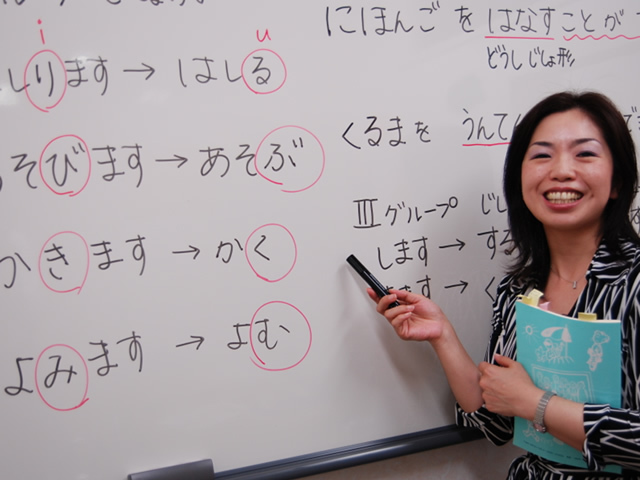 i u
しります → はしる
そびます → あそぶ
かきます → かく
よみます → よむ
にほんご を はなす ことが
どうしじしょ形
くるまを うんて
III グループ じし
します → する
ます → く